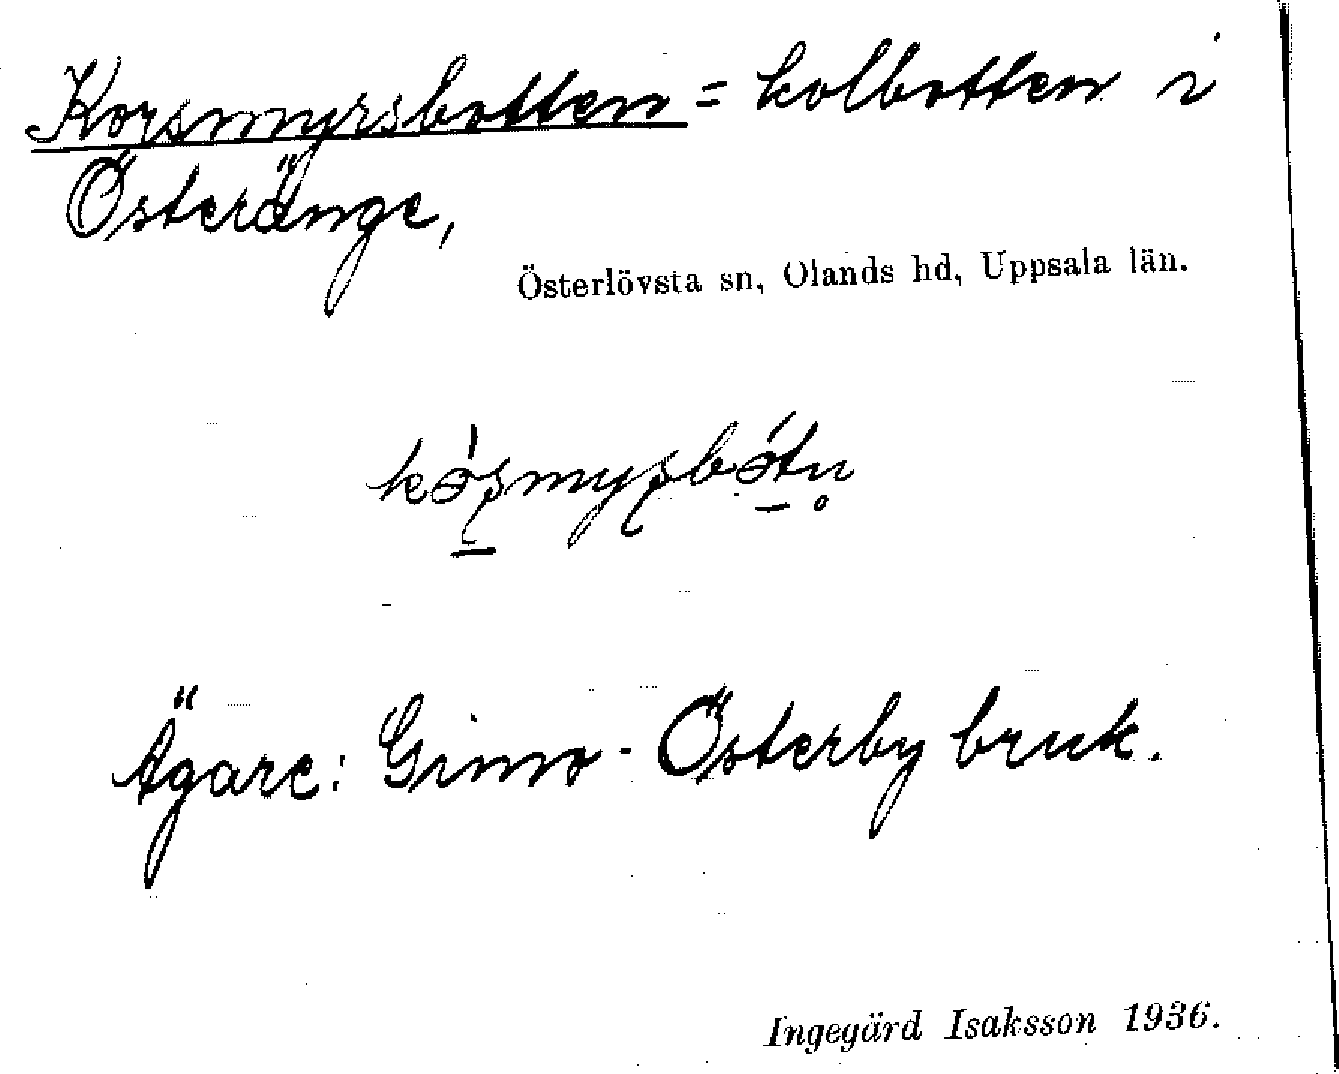 Korsmyrsbotten = kolbotten i
Österänge,
Österlövsta sn, Olands hd, Uppsala län.
Ägare: Gimo - Österby bruk.
Ingegärd Isaksson 1936.